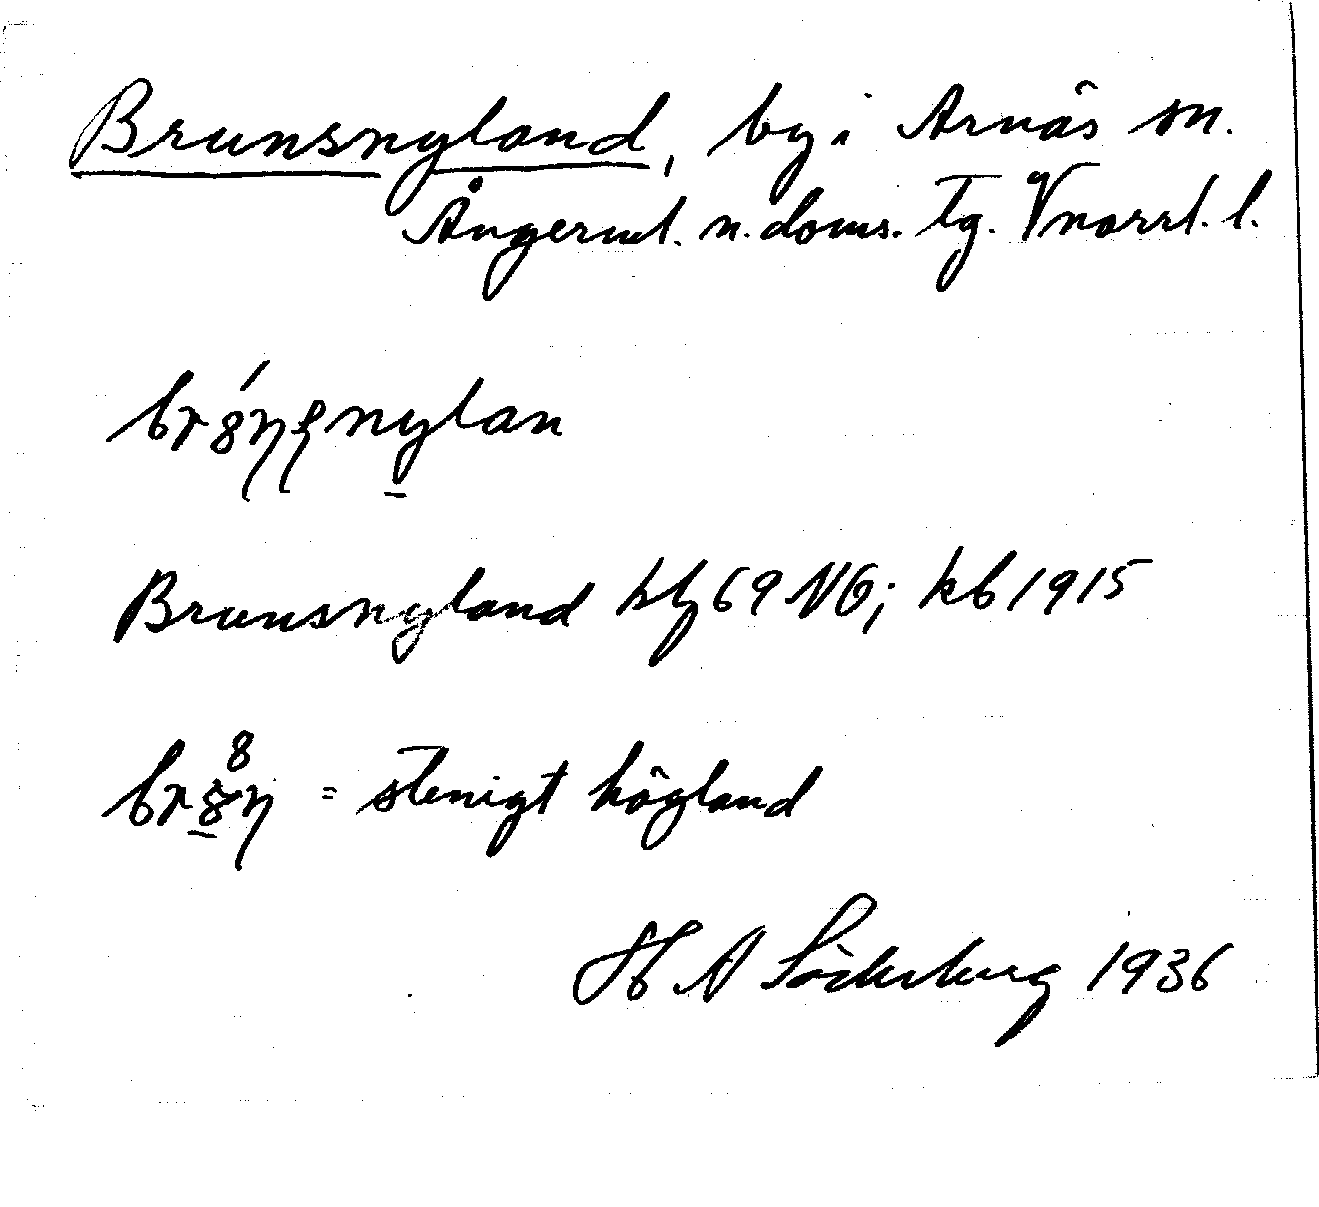 Brunsnyland, by i Arnäs sn.
Ångerml. n. doms. tg. Vnorrl. l.
nylan
Brunsnyland bl 69 NG; kb 1915
= stenigt högland
H A Söderberg 1936